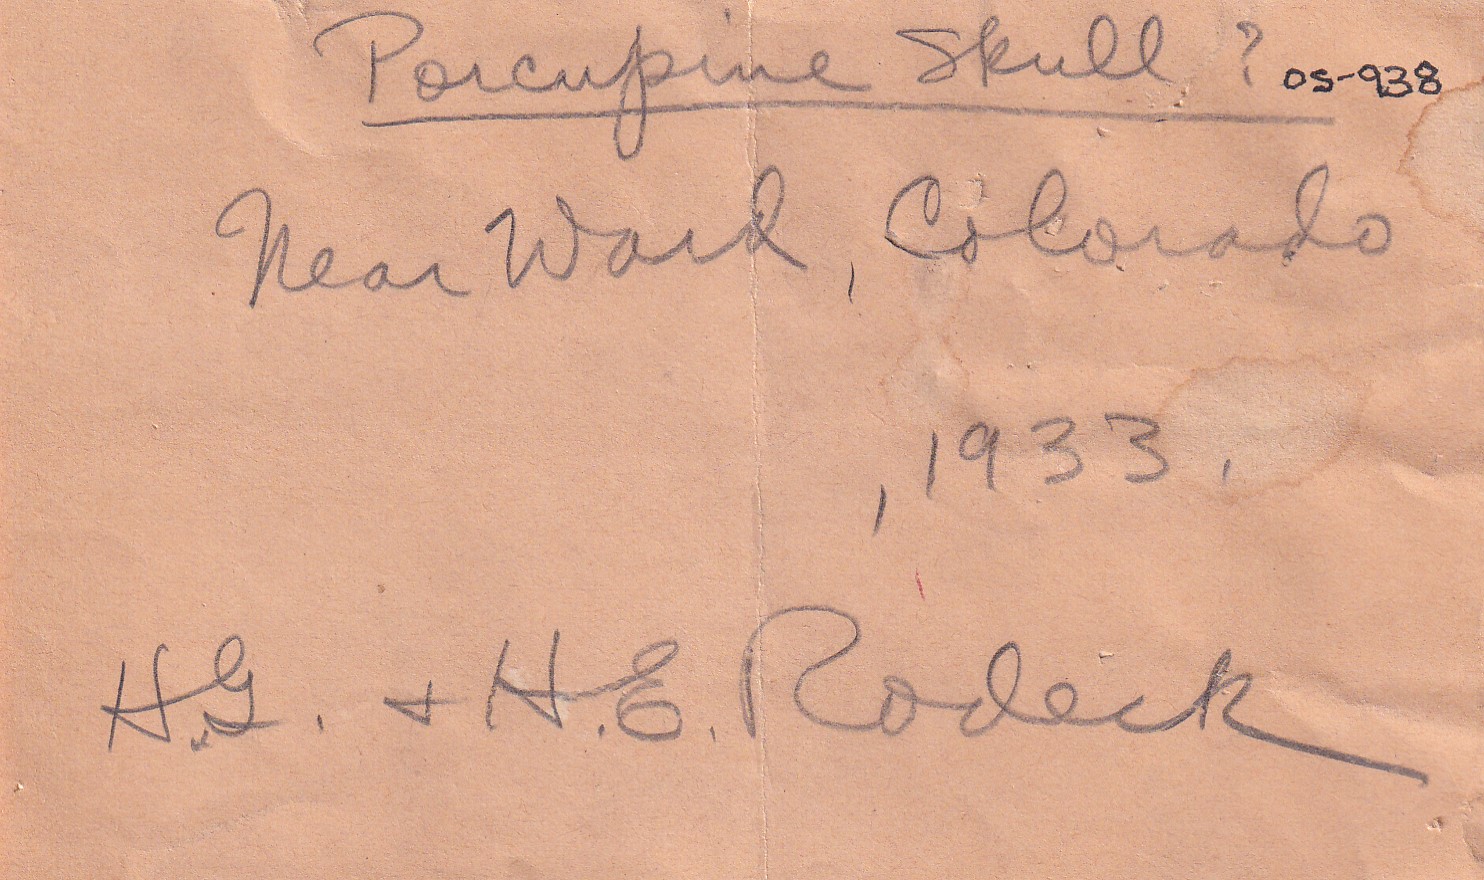 Porcupine Skull ? OS-938
Near Ward, Colorado
, 1933.
H.G. + H.E. Rodeck